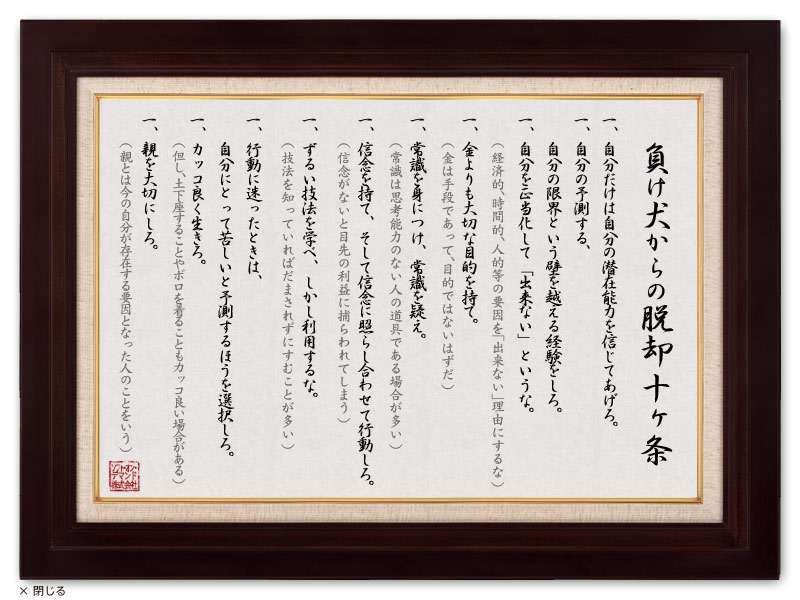 負け犬からの脱却十ヶ条
一、自分だけは自分の潜在能力を信じてあげろ。
一、自分の予測する、
自分の限界という壁を越える経験をしろ。
一、自分を正当化して「出来ない」というな。
(経済的、時間的、人的等の要因を「出来ない」理由にするな)
一、金よりも大切な目的を持て。
(金は手段であって、目的ではないはずだ)
一、常識を身につけ、常識を疑え。
(常識は思考能力のない人の道具である場合が多い)
一、信念を持て、そして信念に照らし合わせて行動しろ。
(信念がないと目先の利益に捕らわれてしまう)
一、ずるい技法を学べ、しかし利用するな。
(技法を知っていればだまされずにすむことが多い)
一、行動に迷ったときは、
自分にとって苦しいと予測するほうを選択しろ。
一、カッコ良く生きろ。
(但し、土下座することやボロを着ることもカッコ良い場合がある)
一、親を大切にしろ。
(親とは今の自分が存在する要因となった人のことをいう)
× 閉じる